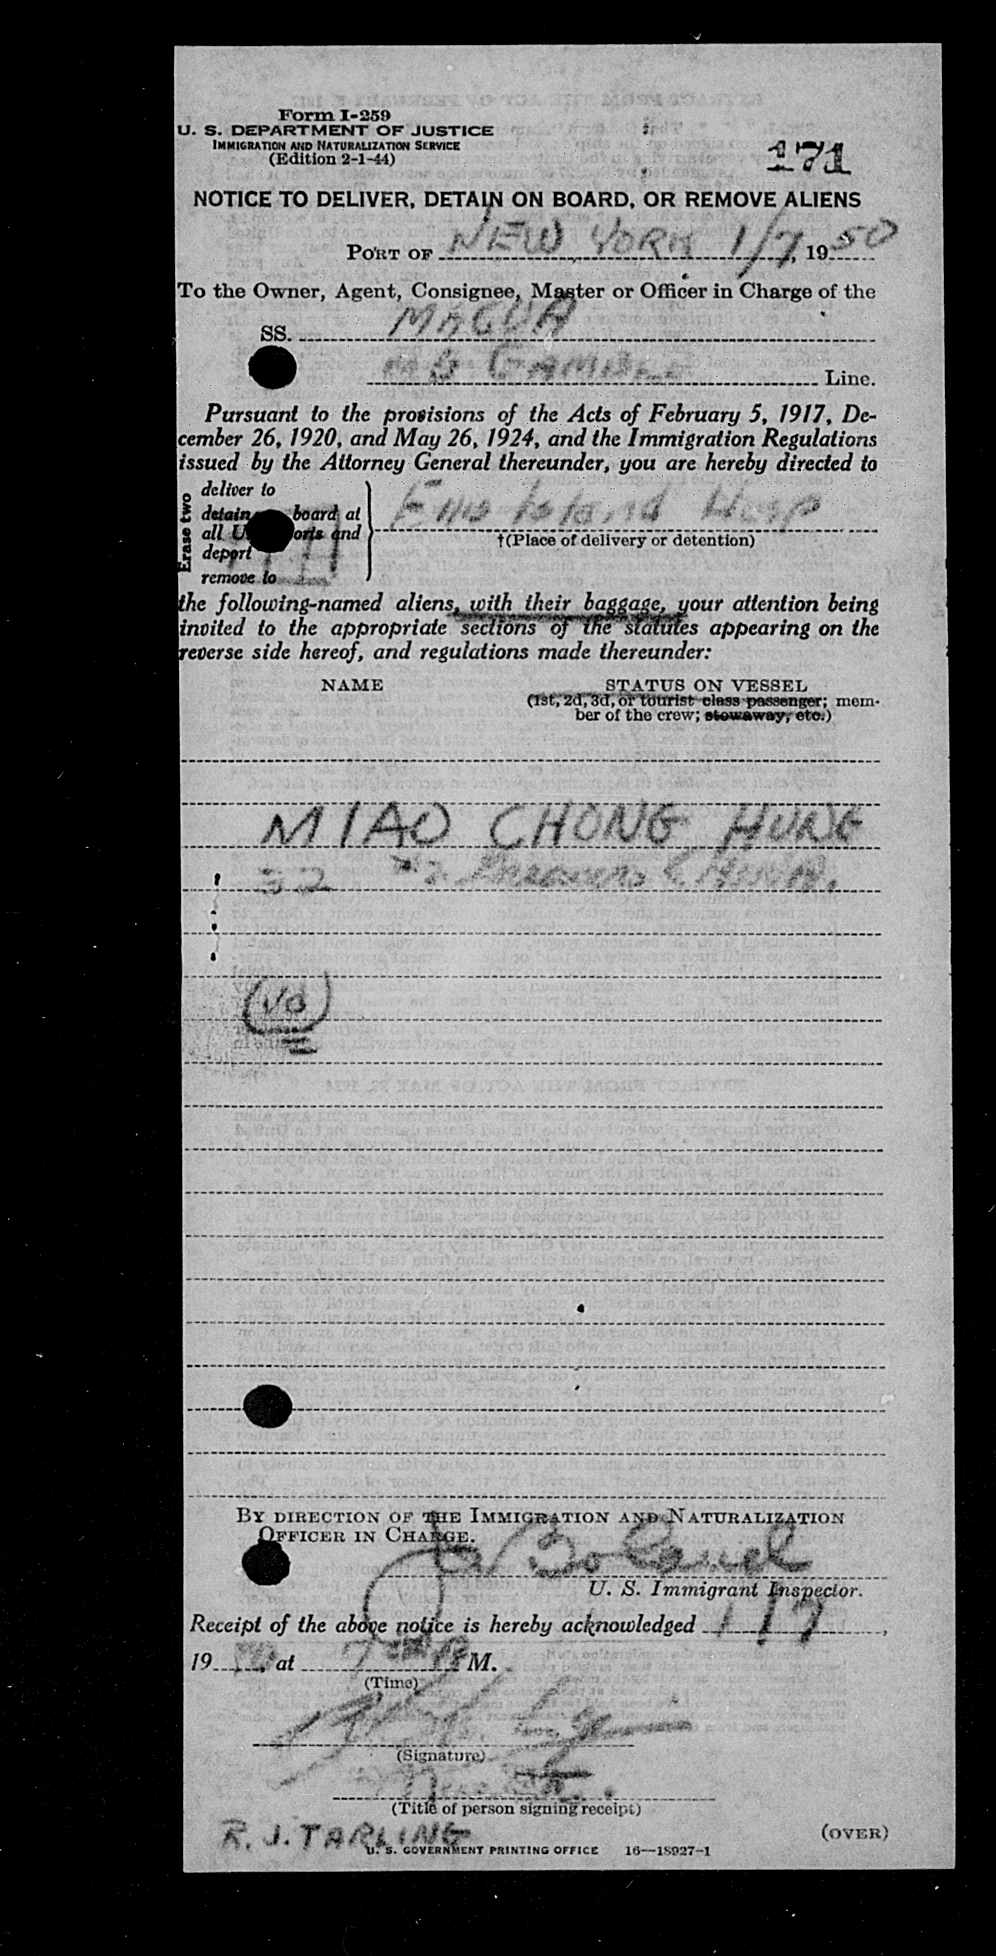 Form I-259
U. S. DEPARTMENT OF JUSTICE
IMMIGRATION AND NATURALIZATION SERVICE
(Edition 2-1-44)
171
NOTICE TO DELIVER, DETAIN ON BOARD, OR REMOVE ALIENS
PORT OF NEW YORK 1/7, 1950
To the Owner, Agent, Consignee, Master or Officer in Charge of the
SS. MAGUA
GAMBLE Line.
Pursuant to the provisions of the Acts of February 5, 1917, De-
cember 26, 1920, and May 26, 1924, and the Immigration Regulations
issued by the Attorney General thereunder, you are hereby directed to
Erase two
deliver to
detain board at
all and
deport
remove to
Ellis Island Hosp
†(Place of delivery or detention)
the following-named aliens, with their baggage, your attention being
invited to the appropriate sections of the statutes appearing on the
reverse side hereof, and regulations made thereunder:
NAME STATUS ON VESSEL
(1st, 2d, 3d, or tourist class passenger; mem-
ber of the crew; stowaway, etc.)
MIAO CHONG HUNG
32
BY DIRECTION OF THE IMMIGRATION AND NATURALIZATION
OFFICER IN CHARGE.
Boland
U. S. Immigrant Inspector.
Receipt of the above notice is hereby acknowledged 1/7,
19 at 7 P M.
(Time)
(Signature)
(Title of person signing receipt)
R. J. TARLING
(OVER)
U. S. GOVERNMENT PRINTING OFFICE 16—18927-1